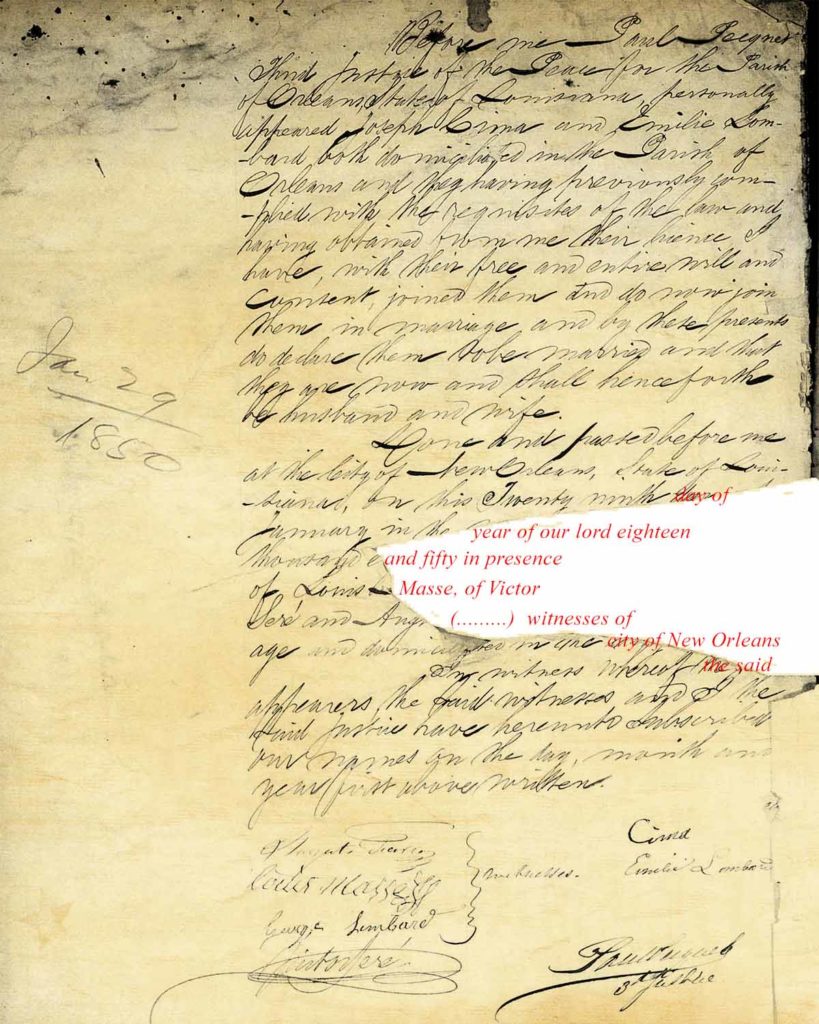 Before me Paul
Third Justice of the Peace for the Parish
of Orleans, State of Louisiana, personally
appeared Joseph Cima and Emilie Lom-
-bard both domiciliated in the Parish of
Orleans and they having previously com-
-plied with the requisites of the law and
having obtained from me their licence I
have, with their free and entire will and
Consent, joined them and do now join
them in marriage and by these presents
do declare them to be married and that
they are now and shall henceforth
be husband and wife.
Jan 29
1850
Done and passed before me
at the City of New Orleans, State of Loui-
-siana, on this Twenty ninth day of
January in the year of our lord eighteen
thousand and fifty in presence
of Louis Masse, of Victor
Seré and Aug (.........) witnesses of
age and domiciliated in the city of New Orleans
In witness whereof the said
appearers, the said witnesses and I the
said Justice have hereunto subscribed
our names on the day, month and
year first above written.
Cima
Emilie Lombard
witnesses.
Louis Masse
George Lombard
Victor Seré
Paul
3rd Justice